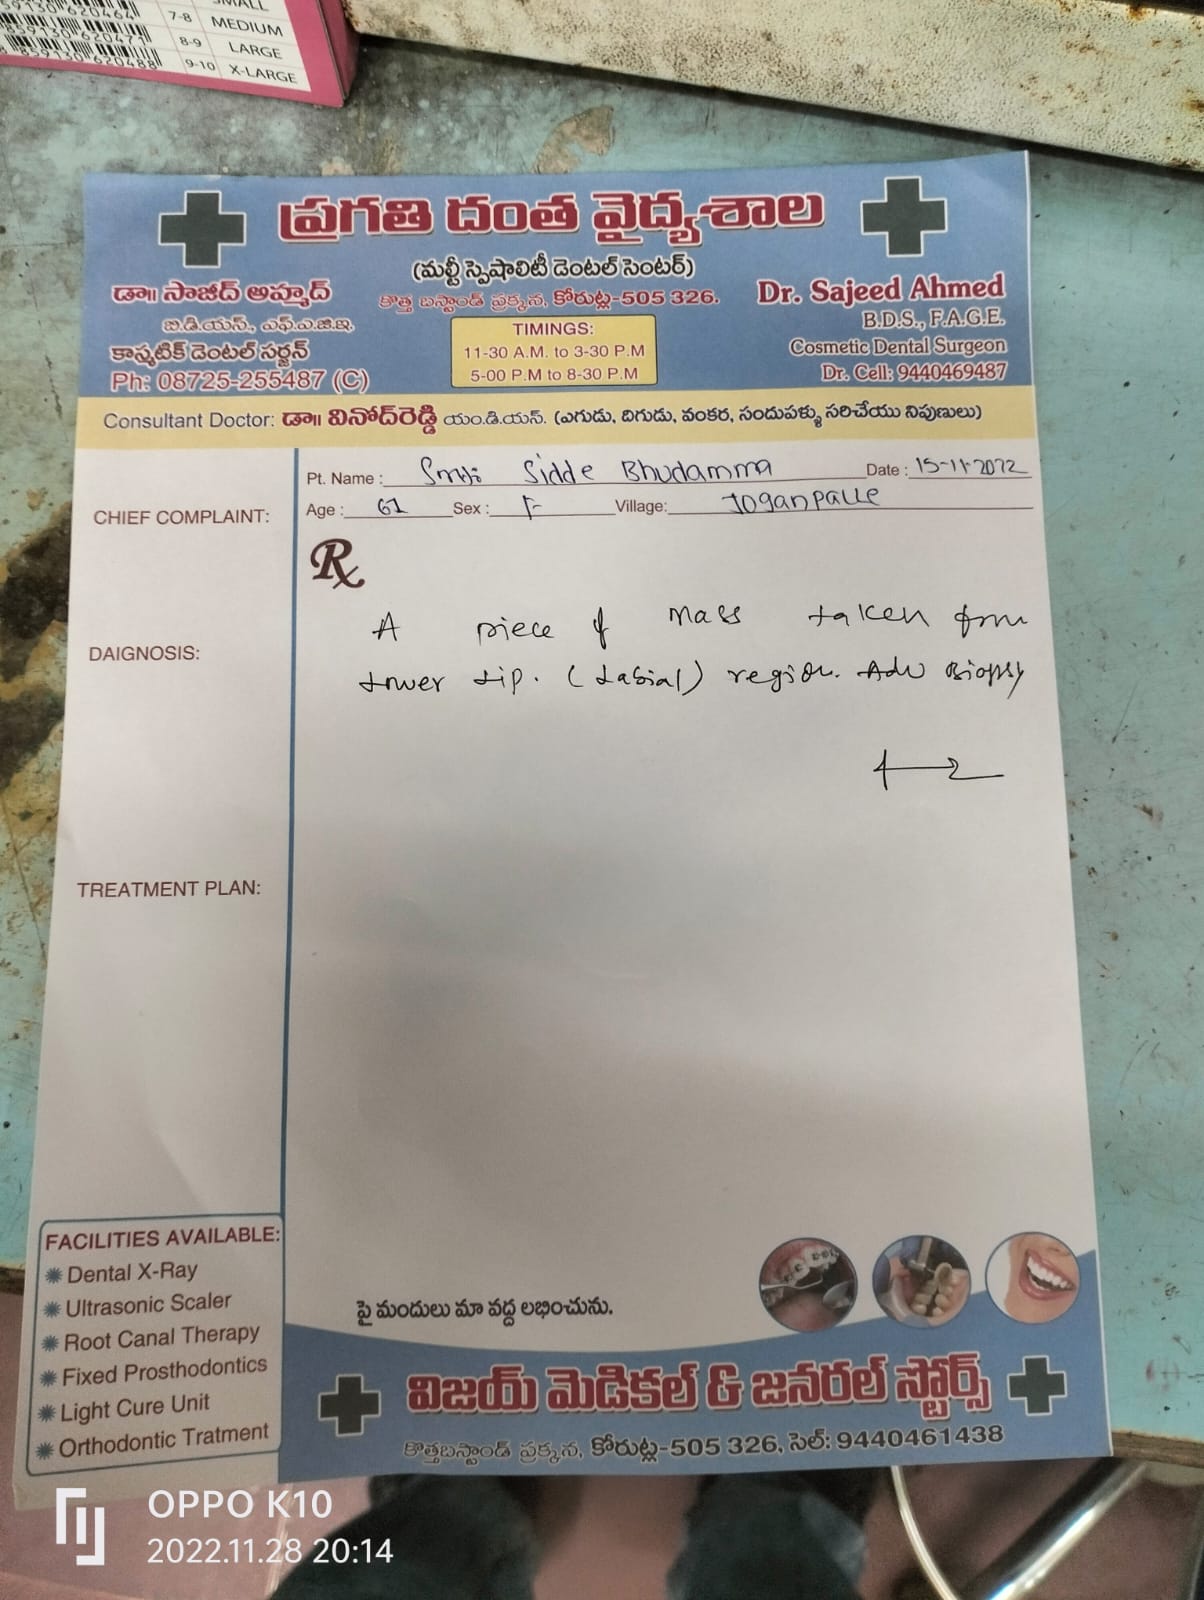 SMALL
7-8 MEDIUM
8-9 LARGE
9-10 X-LARGE
859130 620471
859130 620488
ప్రగతి దంత వైద్యశాల
(మల్టీ స్పెషాలిటీ డెంటల్ సెంటర్)
కొత్త బస్టాండ్ ప్రక్కన, కోరుట్ల-505 326.
డా॥ సాజీద్ అహ్మద్
బి.డి.యస్., ఎఫ్.ఎ.జి.ఇ.
కాస్మటిక్ డెంటల్ సర్జన్
Ph: 08725-255487 (C)
TIMINGS:
11-30 A.M. to 3-30 P.M
5-00 P.M to 8-30 P.M
Dr. Sajeed Ahmed
B.D.S., F.A.G.E.
Cosmetic Dental Surgeon
Dr. Cell: 9440469487
Consultant Doctor: డా॥ వినోద్‌రెడ్డి యం.డి.యస్. (ఎగుడు, దిగుడు, వంకర, సందుపళ్ళు సరిచేయు నిపుణులు)
Pt. Name : Smt: Sidde Bhudamma Date : 15-11-2022
Age : 61 Sex : F Village: Joganpalle
CHIEF COMPLAINT:
DAIGNOSIS:
TREATMENT PLAN:
Rx
A piece of mass taken from
Lower Lip. (Labial) region. Adv Biopsy
FACILITIES AVAILABLE:
Dental X-Ray
Ultrasonic Scaler
Root Canal Therapy
Fixed Prosthodontics
Light Cure Unit
Orthodontic Tratment
పై మందులు మా వద్ద లభించును.
విజయ్ మెడికల్ & జనరల్ స్టోర్స్
కొత్తబస్టాండ్ ప్రక్కన, కోరుట్ల-505 326, సెల్: 9440461438
OPPO K10
2022.11.28 20:14